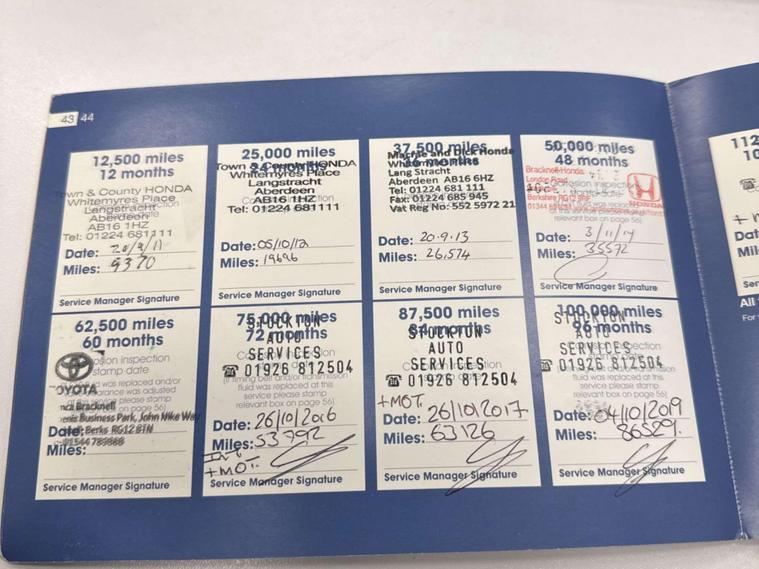 43 44
12,500 miles
12 months
Town & County HONDA
Whitemyres Place
Langstracht
Aberdeen
AB16 1HZ
Tel: 01224 681111
Date:
Miles: 9370
Service Manager Signature
25,000 miles
24 months
Town & County HONDA
Whitemyres Place
Langstracht
Aberdeen
AB16 1HZ
Tel: 01224 681111
Date: 05/10/12
Miles: 19696
Service Manager Signature
37,500 miles
36 months
Macrae and Dick Honda
Whitemyres Place
Lang Stracht
Aberdeen AB16 6HZ
Tel: 01224 681 111
Fax: 01224 685 945
Vat Reg No: 552 5972 21
Date: 20.9.13
Miles: 26,574
Service Manager Signature
50,000 miles
48 months
Bracknell Honda
London Road
Berkshire
HONDA
Date: 3/11/14
Miles: 35572
Service Manager Signature
62,500 miles
60 months
Corrosion inspection
stamp date
TOYOTA
Bracknell
Business Park, John Nike Way
Berks RG12 8TN
Date:
Miles:
Service Manager Signature
75,000 miles
72 months
STOCKTON
AUTO
SERVICES
☎ 01926 812504
Date: 26/10/2016
Miles: 53792
Service Manager Signature
87,500 miles
84 months
STOCKTON
AUTO
SERVICES
☎ 01926 812504
+MOT.
Date: 26/10/2017
Miles: 63126
Service Manager Signature
100,000 miles
96 months
STOCKTON
AUTO
SERVICES
☎ 01926 812504
Date: 04/10/2019
Miles: 86529.
Service Manager Signature